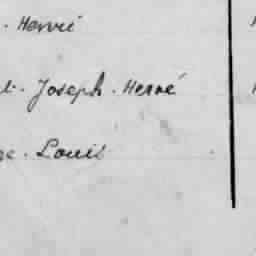 . Hervé
. Joseph. Hervé
. Louis